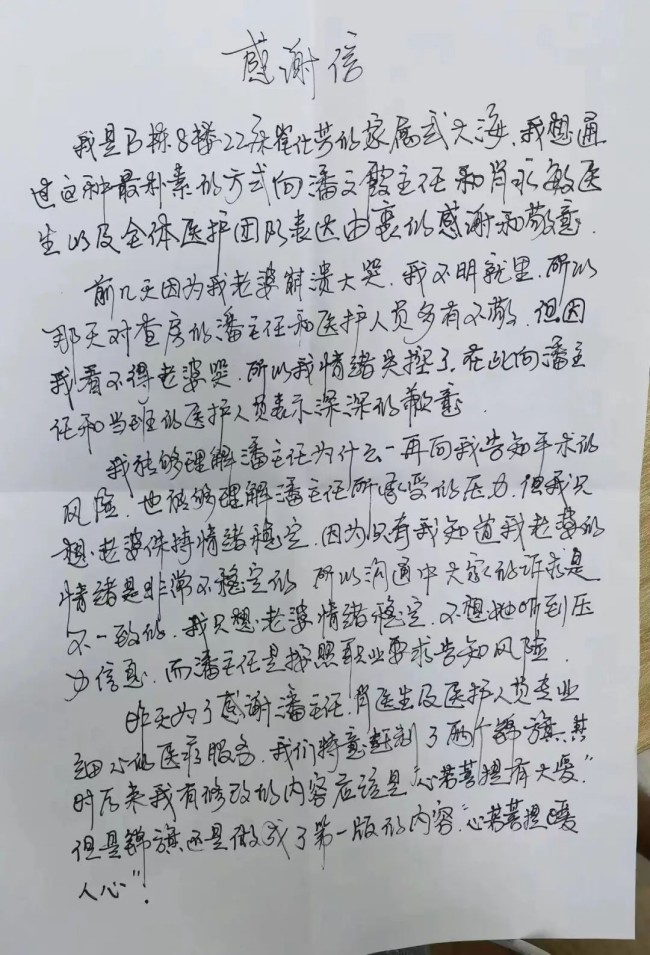 感谢信
我是B栋8楼22床崔仕芳的家属武大海，我想通
过这种最朴素的方式向潘文霞主任和肖永敏医
生以及全体医护团队表达由衷的感谢和敬意.
前几天因为我老婆崩溃大哭，我不明就里，所以
那天对查房的潘主任和医护人员多有不敬，但因
我看不得老婆哭，所以我情绪失控了，在此向潘主
任和当班的医护人员表示深深的歉意.
我能够理解潘主任为什么一再向我告知手术的
风险，也能够理解潘主任所承受的压力，但我只
想老婆保持情绪稳定，因为只有我知道我老婆的
情绪是非常不稳定的，所以沟通中大家的诉求是
不一致的，我只想老婆情绪稳定，不想她听到压
力信息，而潘主任是按照职业要求告知风险.
昨天为了感谢潘主任，肖医生及医护人员专业
细心的医疗服务，我们特意赶制了两个锦旗，其
时后来我有修改的内容应该是“心若菩提有大爱”
但是锦旗还是做成了第一版的内容“心若菩提暖
人心”！